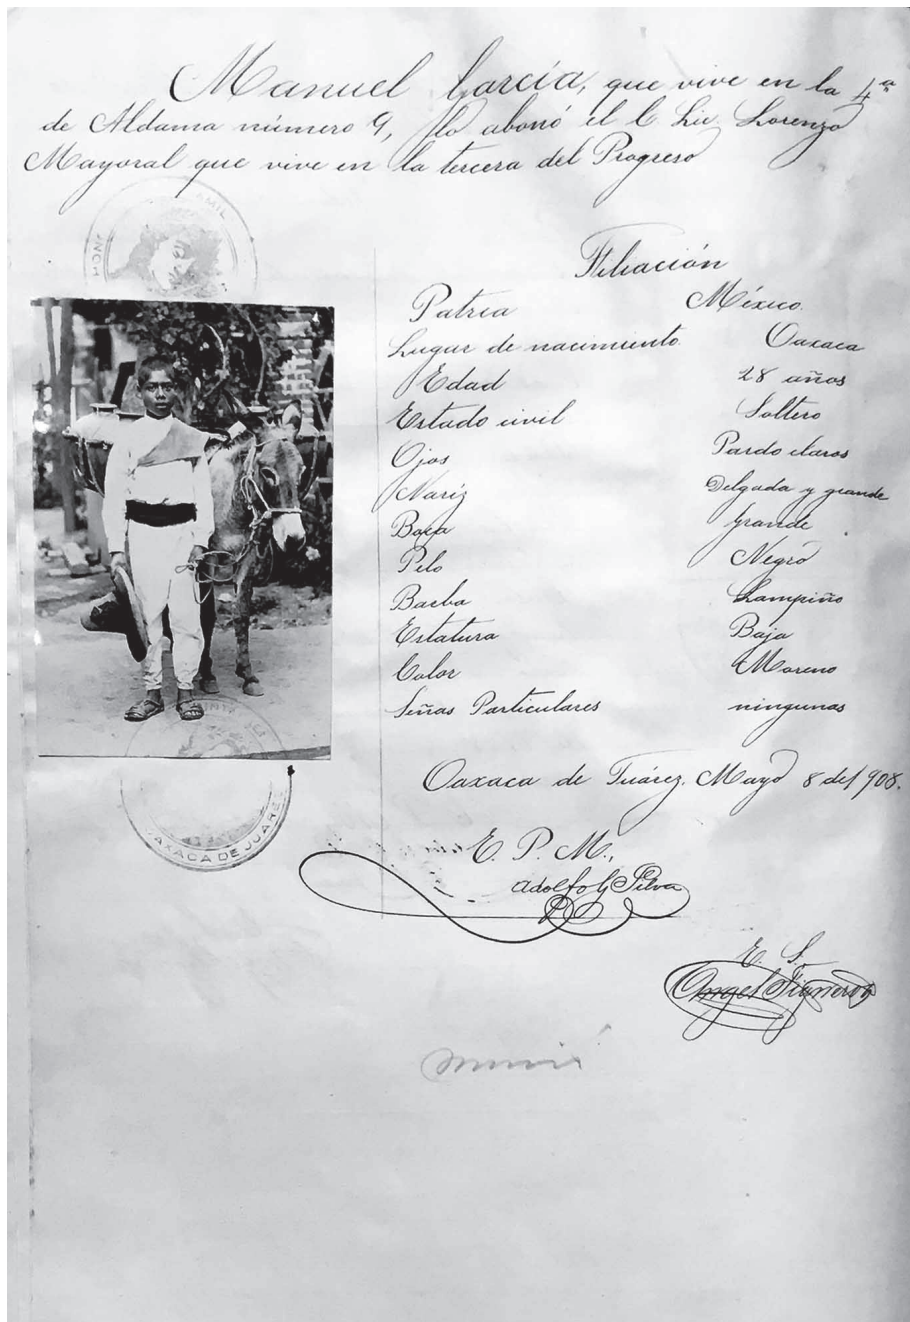 Manuel García, que vive en la 4ª
de Aldama número 9, lo abonó el C. Lic. Lorenzo
Mayoral que vive en la tercera del Progreso
Filiación
Patria México.
Lugar de nacimiento Oaxaca
Edad 28 años
Estado civil Soltero
Ojos Pardo claros
Nariz Delgada y grande
Boca Grande
Pelo Negro
Barba Lampiño
Estatura Baja
Color Moreno
Señas Particulares ningunas
Oaxaca de Juárez. Mayo 8 de 1908.
E. P. M.,
Adolfo G Silva
E. S.
Angel Figueroa
murió
OAXACA DE JUAREZ